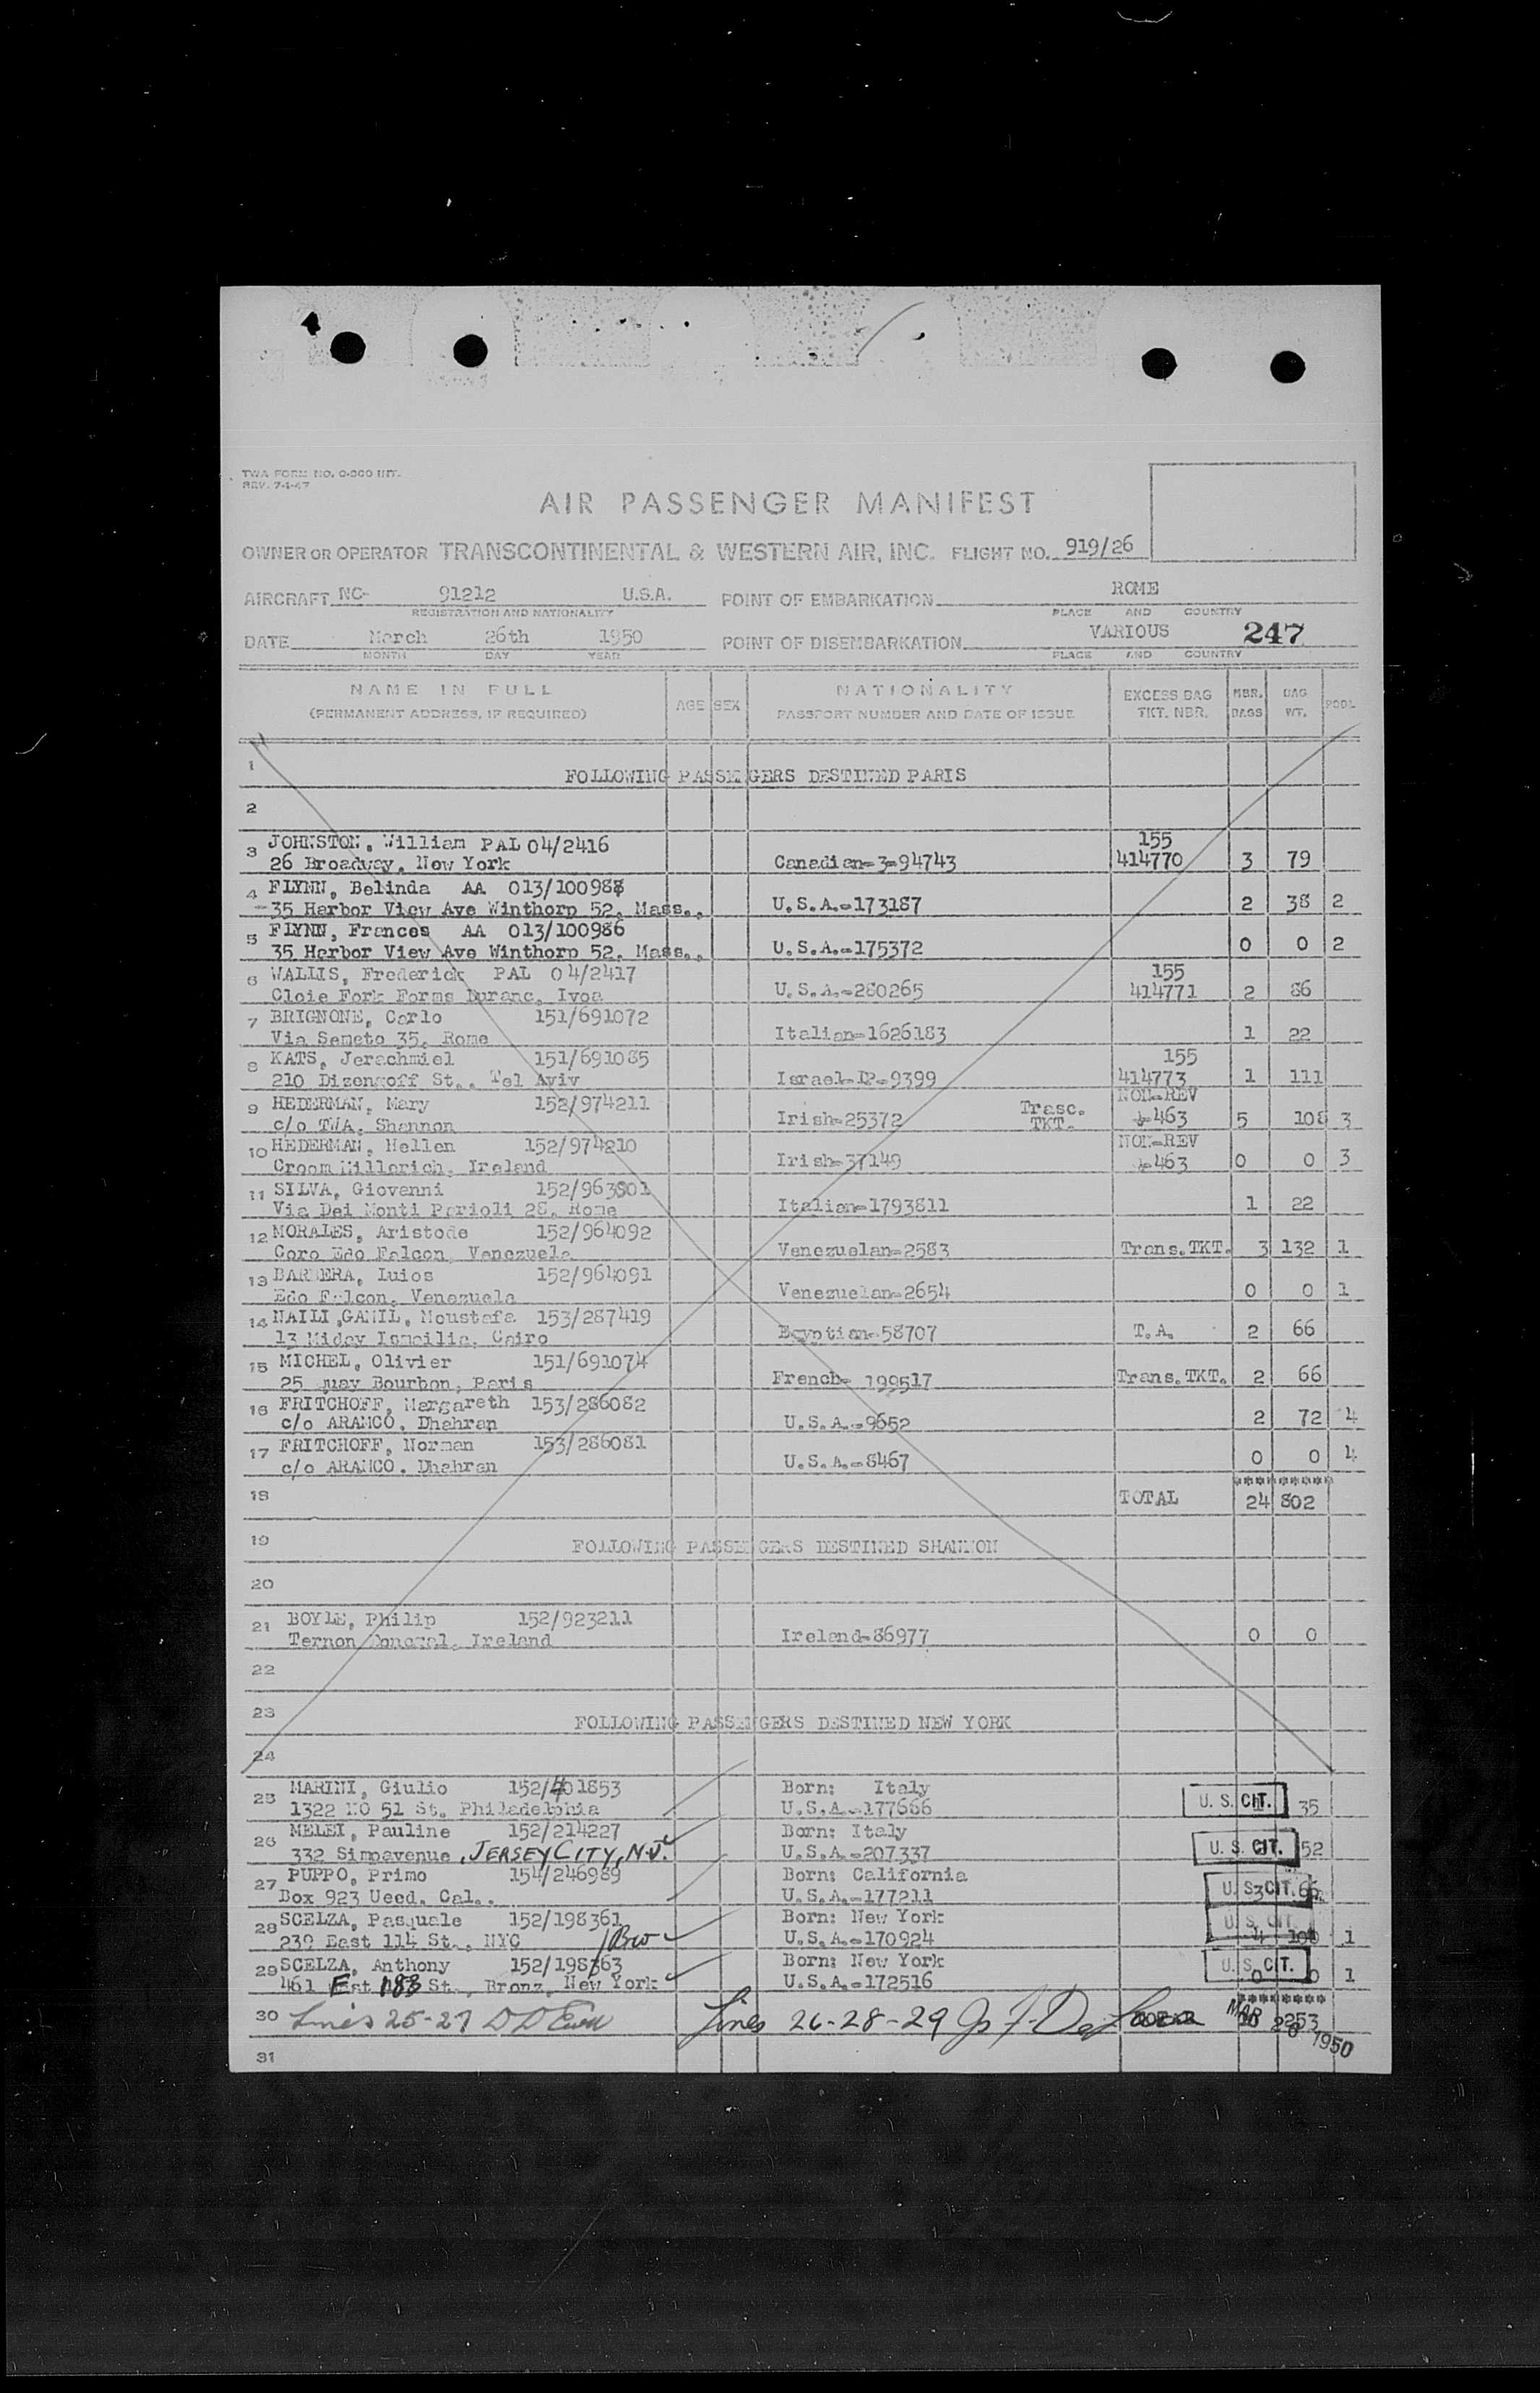 TWA FORM NO. O-300 INT.
REV. 7-1-47
AIR PASSENGER MANIFEST
OWNER OR OPERATOR TRANSCONTINENTAL & WESTERN AIR, INC. FLIGHT NO. 919/26
AIRCRAFT NC- 91212 U.S.A. POINT OF EMBARKATION ROME
REGISTRATION AND NATIONALITY PLACE AND COUNTRY
DATE March 26th 1950 POINT OF DISEMBARKATION VARIOUS 247
MONTH DAY YEAR PLACE AND COUNTRY
NAME IN FULL
(PERMANENT ADDRESS, IF REQUIRED) AGE SEX
NATIONALITY
PASSPORT NUMBER AND DATE OF ISSUE
EXCESS BAG TKT. NBR. NBR. BAGS BAG WT. POOL
1 FOLLOWING PASSENGERS DESTINED PARIS
2
3 JOHNSTON, William PAL 04/2416 155
26 Broadway, New York Canadian-3-94743 414770 3 79
4 FLYNN, Belinda AA 013/100988
35 Harbor View Ave Winthorp 52, Mass., U.S.A.-173187 2 38 2
5 FLYNN, Frances AA 013/100986
35 Harbor View Ave Winthorp 52, Mass., U.S.A.-175372 0 0 2
6 WALLIS, Frederick PAL 04/2417 155
Cloie Fork Forms U.S.A.-280265 414771 2 86
7 BRIGNONE, Carlo 151/691072
Via Sameto 35, Rome Italian-1626183 1 22
8 KATS, Jerachmiel 151/691085 155
210 Dizengoff St., Tel Aviv Israel-DP-9399 414773 1 111
9 HEDERMAN, Mary 152/974211 Trasc. NON-REV
c/o TWA, Shannon Irish-25372 TKT. 463 5 108 3
10 HEDERMAN, Hellen 152/974210 NON-REV
Croom Millerich, Ireland Irish-37149 463 0 0 3
11 SILVA, Giovanni 152/963801
Via Dei Monti Parioli 28, Rome Italian-1793811 1 22
12 MORALES, Aristode 152/964092
Coro Edo Falcon, Venezuela Venezuelan-2583 Trans.TKT. 3 132 1
13 BARBERA, Luios 152/964091
Edo Falcon, Venezuela Venezuelan-2654 0 0 1
14 NAILI, GAMIL, Moustafa 153/287419
13 Miday Ismailia, Cairo Egyptian-58707 T.A. 2 66
15 MICHEL, Olivier 151/691074
25 quay Bourbon, Paris French- 199517 Trans.TKT. 2 66
16 FRITCHOFF, Margareth 153/286082
c/o ARAMCO, Dhahran U.S.A.-9652 2 72 4
17 FRITCHOFF, Norman 153/286081
c/o ARAMCO. Dhahran U.S.A.-8467 0 0 4
18 TOTAL 24 802
19 FOLLOWING PASSENGERS DESTINED SHANNON
20
21 BOYLE, Philip 152/923211
Ternon Donegal, Ireland Ireland-86977 0 0
22
23 FOLLOWING PASSENGERS DESTINED NEW YORK
24
25 MARINI, Giulio 152/401853 Born: Italy
1322 NO 51 St. Philadelphia U.S.A.-177666 U.S. CIT. 35
26 MELEI, Pauline 152/214227 Born: Italy
332 Simpavenue, JERSEY CITY, N.J. U.S.A.-207337 U.S. CIT. 52
27 PUPPO, Primo 154/246989 Born: California
Box 923 Weed, Cal., U.S.A.-177211 U.S. CIT. 3 66
28 SCELZA, Pasquale 152/198361 Born: New York
239 East 114 St., NYC U.S.A.-170924 U.S. CIT. 4 100 1
29 SCELZA, Anthony 152/198363 Born: New York
461 East 183 St., Bronz, New York U.S.A.-172516 U.S. CIT. 0 0 1
30 Lines 25-27 Lines 26-28-29 253 MAR 28 1950
31